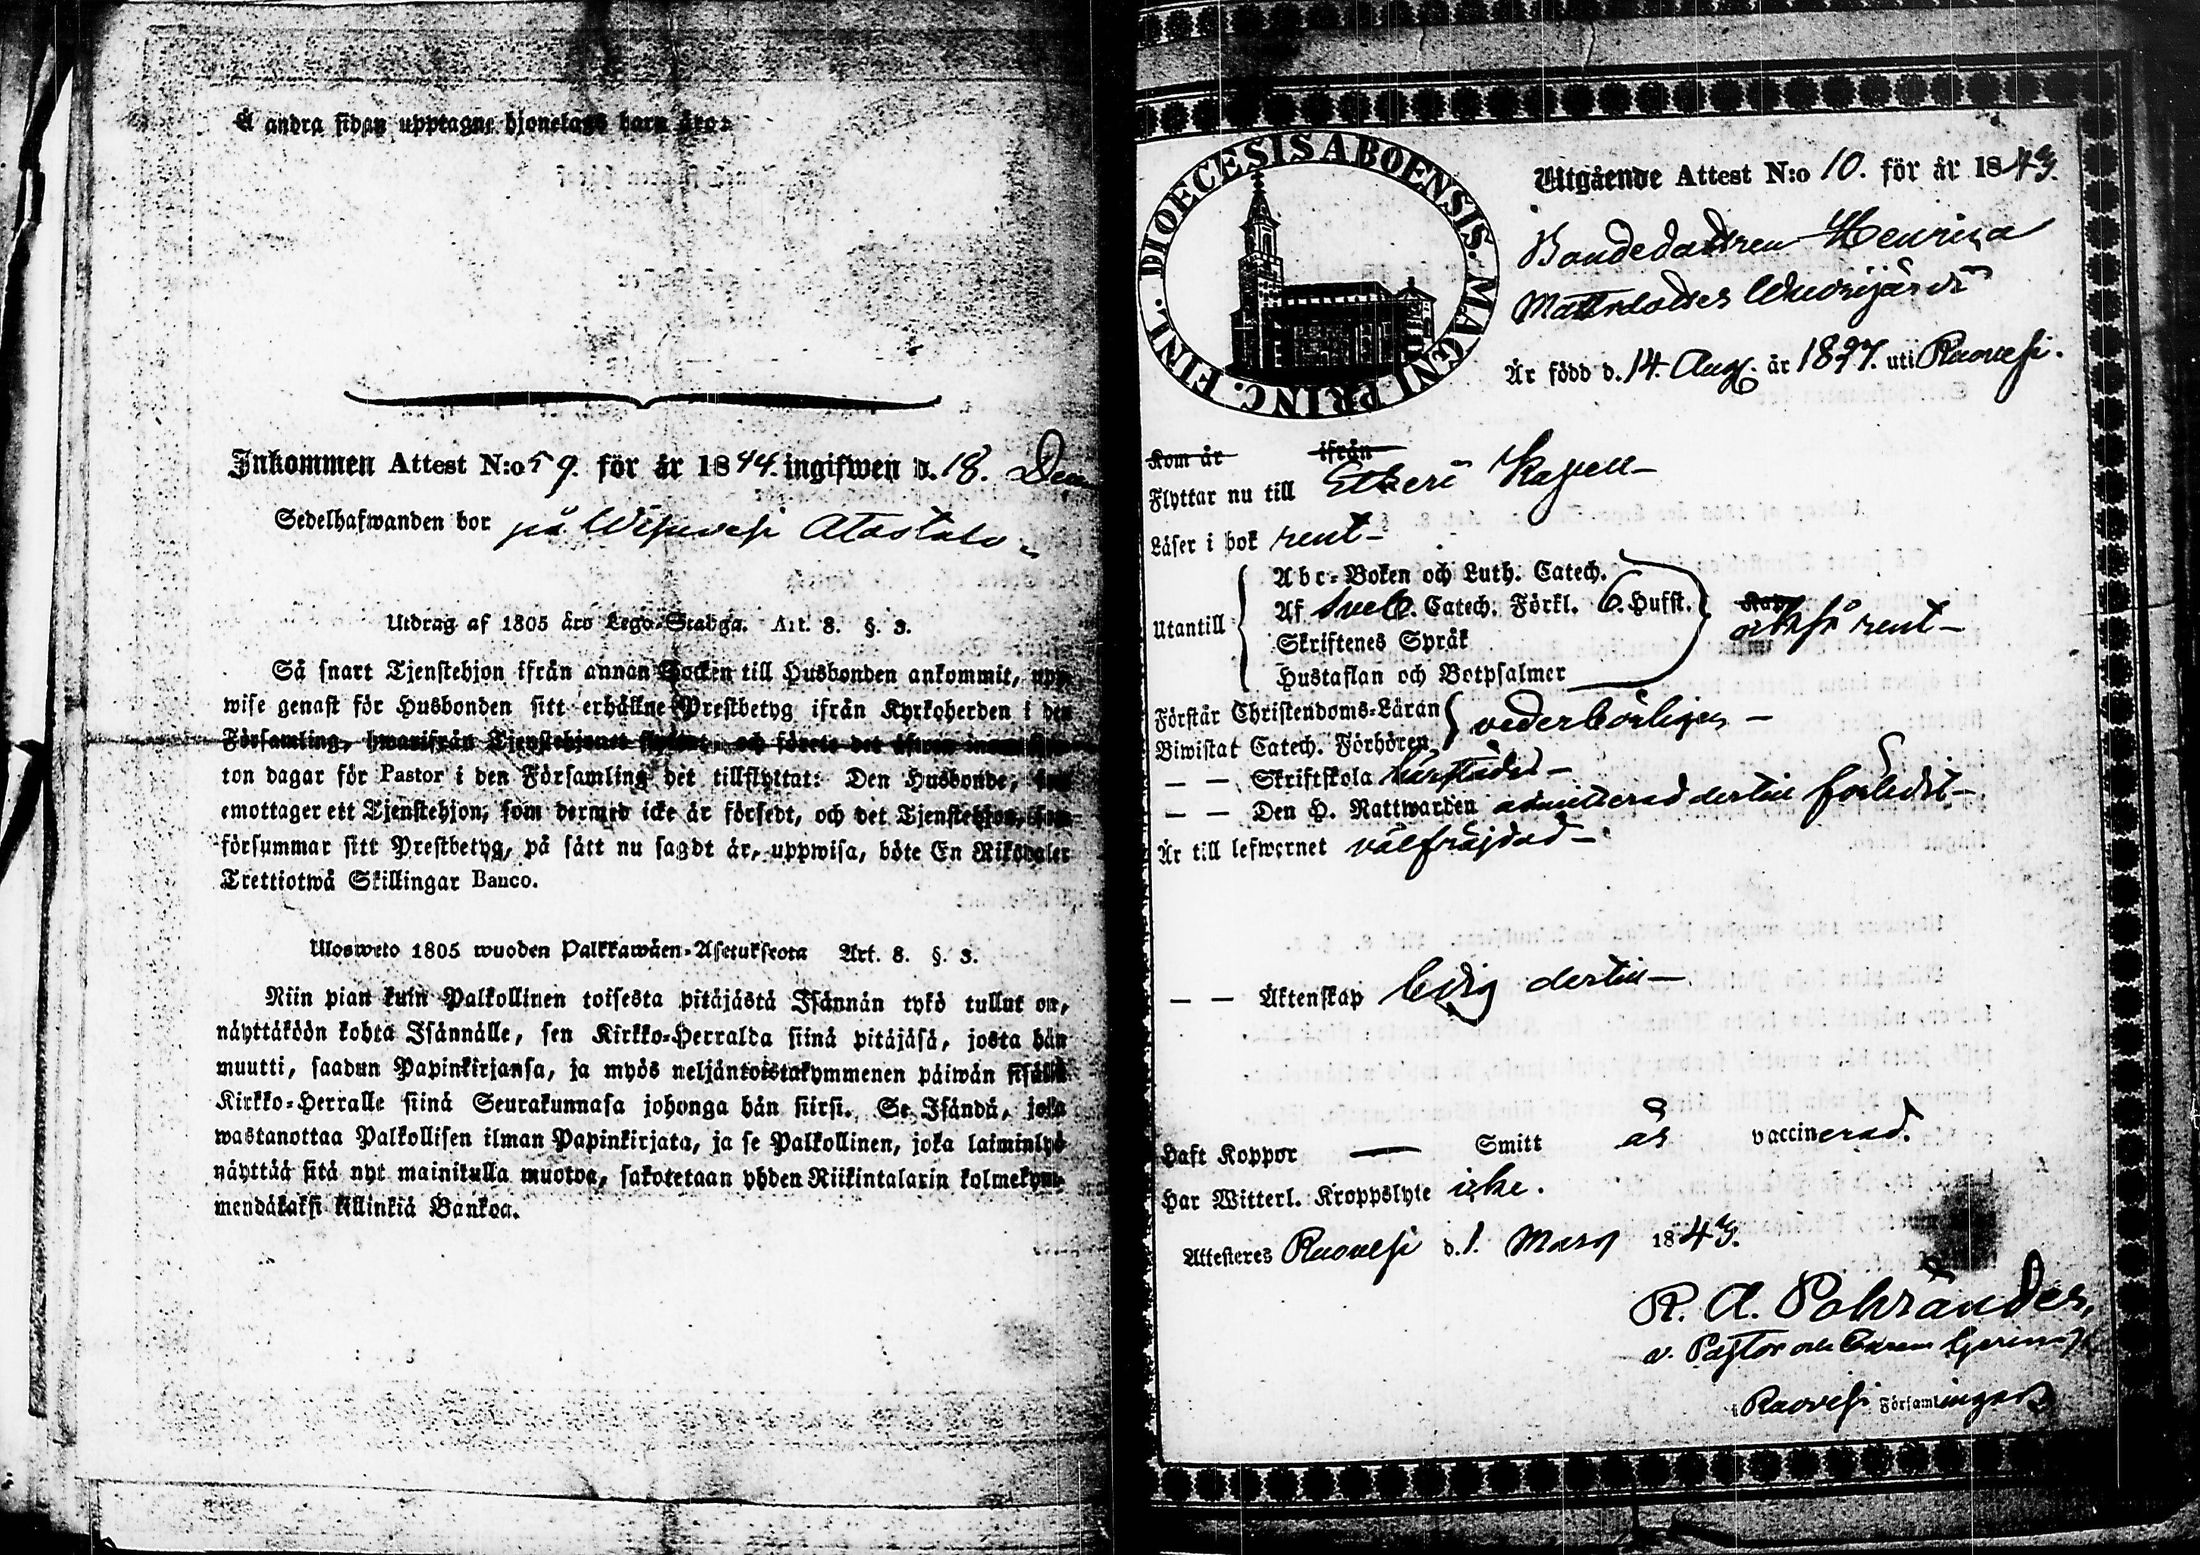 Å andra sidan upptagne hjonelags barn äro:
Inkommen Attest N:o 59. för år 1844. ingifwen d. 18. Decem
Sedelhafwanden bor på Wisuvesi
Utdrag af 1805 års Lego-Stadga. Art. 8. §. 3.
Så snart Tjenstehjon ifrån annan Socken till Husbonden ankommit, upp-
wise genast för Husbonden sitt erhållne Prestbetyg ifrån Kyrkoherden i den
Församling, hwarifrån Tjenstehjonet flyttat, och förete det äfwen inom fjor-
ton dagar för Pastor i den Församling det tillflyttat: Den Husbonde, som
emottager ett Tjenstehjon, som dermed icke är försedt, och det Tjenstehjon, som
försummar sitt Prestbetyg, på sätt nu sagdt är, uppwisa, böte En Riksdaler
Trettiotwå Skillingar Banco.
Ulosweto 1805 wuoden Palkkawäen-Asetuksesta Art. 8. §. 3.
Niin pian kuin Palkollinen toisesta pitäjästä Isännän tykö tullut on,
näyttäköön kohta Isännälle, sen Kirkko-Herralda siinä pitäjäsä, josta hän
muutti, saadun Papinkirjansa, ja myös neljäntoistakymmenen päiwän sisällä
Kirkko-Herralle siinä Seurakunnasa johonga hän siirsi. Se Isändä, joka
wastanottaa Palkollisen ilman Papinkirjata, ja se Palkollinen, joka laiminlyö
näyttää sitä nyt mainitulla muotoa, sakotetaan yhden Riikintalarin kolmekym-
mendäkaksi killinkiä Bankoa.
DIOECESIS ABOENSIS. MAGNI PRINC. FINL.
Utgående Attest N:o 10. för år 1843.
Bondedottren Henrica
Mattsdotter
Är född d. 14. Aug. år 1827. uti Ruovesi.
Kom år ifrån
Flyttar nu till Etseri Kapell
Läser i bok rent
Utantill
Abc-Boken och Luth. Catech.
Af Sveb. Catech. Förkl. 6. Hufst.
Skriftenes Språk
Hustaflan och Botpsalmer
Kan
också rent
Förstår Christendoms-Läran
Biwistat Catech. Förhören
vederbörligen
— — Skriftskola
— — Den H. Nattwarden admitterad dertill förledit
Är till lefwernet välfräjdad
— — Äktenskap ledig dertill
Haft Koppor — Smitt är vaccinerad.
Har Witterl. Kroppslyte icke.
Attesteres Ruovesi d. 1. Mars 1843.
R. A. Polviander,
v. Pastor
i Ruovesi Församlingar